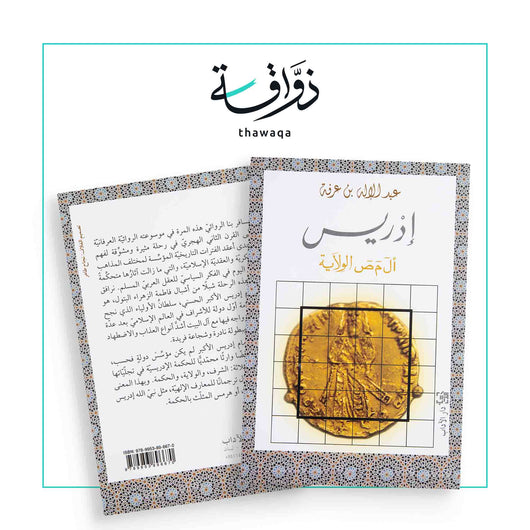 ذوّاقة
thawaqa
عبد الإله بن عرفة
إدريس
ال مَصَ الولاية
دار الآداب
سافر بنا الروائيّ هذه المرة في موسوعته الروائيّة العرفانيّة
القرن الثاني الهجريّ في رحلة مثيرة ومشوّقة لفهم
أعقد الفترات التاريخيّة المؤسّسة لمختلف المذاهب
والعقديّة الإسلامية، والتي ما زالت آثارها متحكّمة
اليوم في الفكر السياسيّ للعقل العربيّ المسلم. نرافق
الرحلة سيلًا من أشبال فاطمة الزهراء البتول، هو
إدريس الأكبر الحسني، سلطان الأولياء الذي نجح
أول دولة للأشراف في العالم الإسلاميّ بعد عدة
فيها مع آل البيت أشدّ أنواع العذاب والاضطهاد
بطولة نادرة وشجاعة فريدة.
إدريس الأكبر لم يكن مؤسّس دولة فحسب،
وارثًا محمّديًّا للحكمة الإدريسيّة في تجلّياتها
الشرف، والولاية، والحكمة. وبهذا المعنى
ترجمانًا للمعارف الإلهيّة، مثل نبيّ الله إدريس
أو هرمس المثلّث بالحكمة.